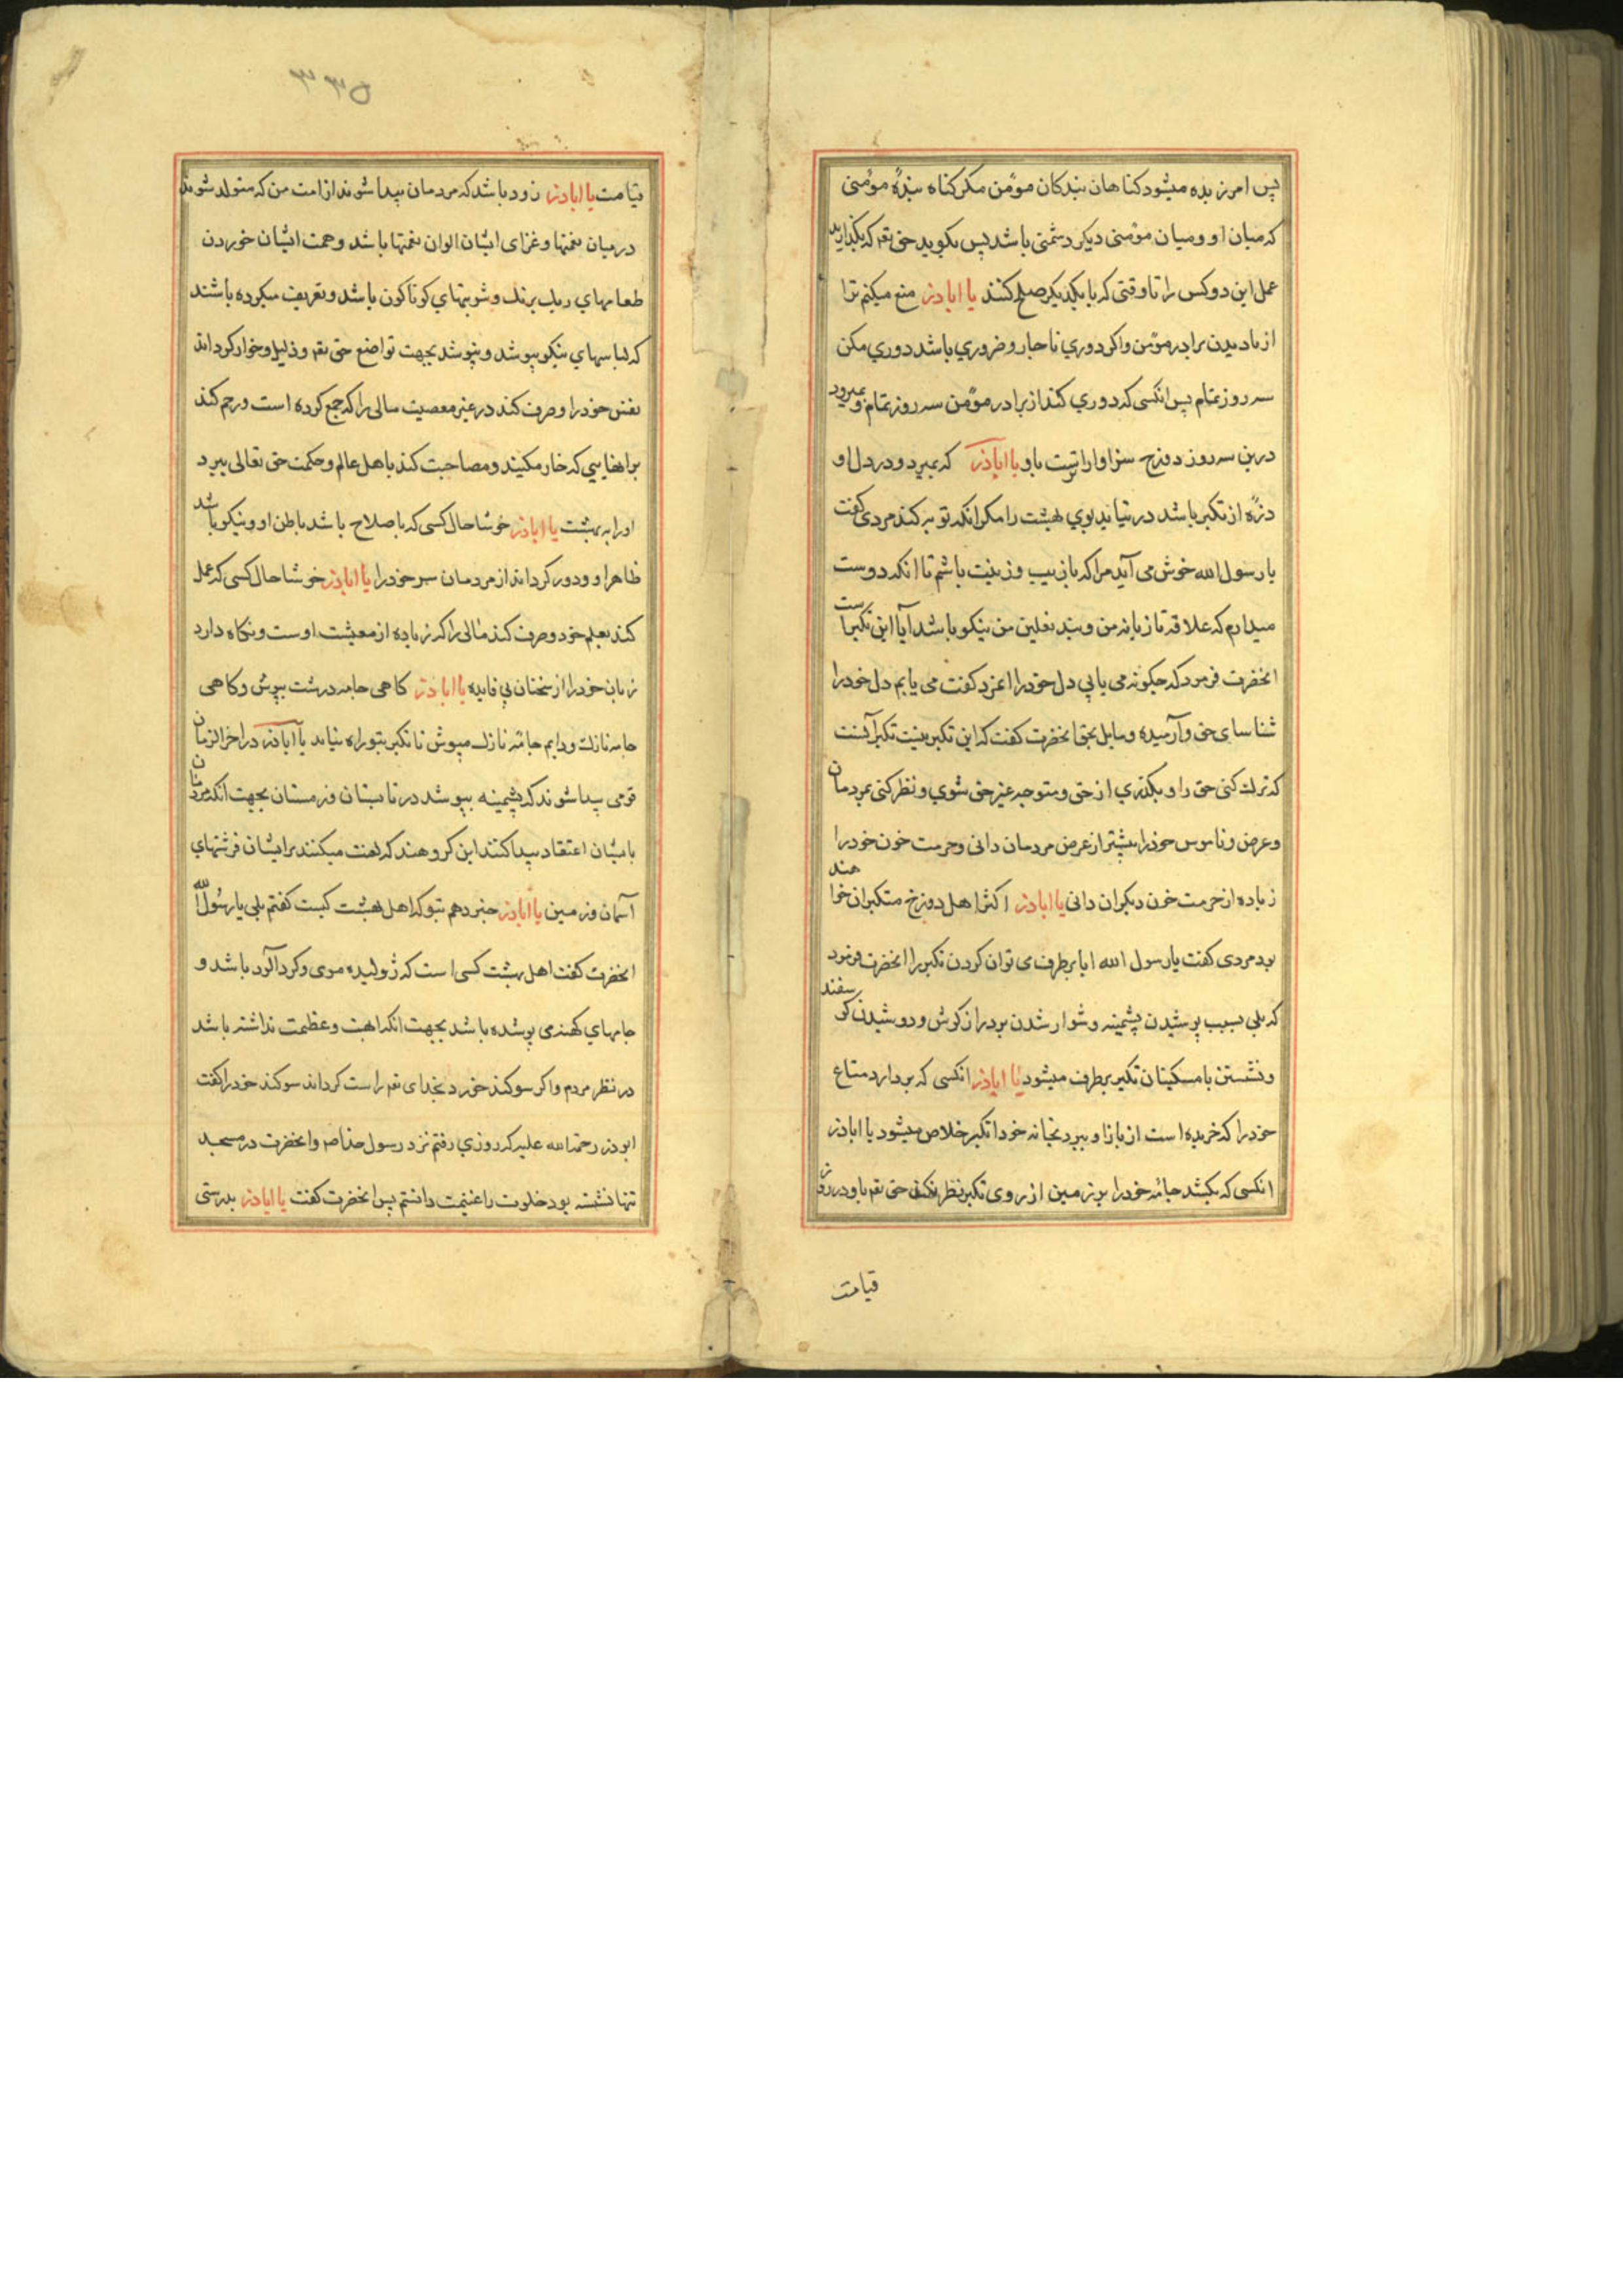 پس امرزیده میشود کناهان بندکان مؤمن مکر کناه بندهٔ مؤمنی
که میان او و میان مؤمنی دیکر دشمنی باشد پس بکوید حق تعم که بکذارید
عمل این دو کس را تا وقتی که با یکدیکر صلح کنند یا اباذر منع میکنم ترا
از نادیدن برادر مؤمن واکر دوری ناچار و ضروری باشد دوری مکن
سه روز تمام پس انکسی که دوری کند از برادر مؤمن سه روز تمام و بمیرد
درین سه روز دوزخ سزاوارتراست باو یا اباذر که بمیرد و در دل او
ذرهٔ از تکبر باشد در نیابد بوی بهشت را مکر انکه توبه کند مردی کفت
یا رسول الله خوش می آید مرا که بازیب و زینت باشم تا انکه دوست
میدارم که علاقه تازیانه من و بند نعلین من نیکو باشد آیا این تکبر است
انحضرت فرمود که چکونه می یابی دل خود را اعزد کفت می یابم دل خود را
شناسای حق و آرمیده و مایل بحق انحضرت کفت که این تکبر نیست تکبر آنست
که ترک کنی حق را و بکذری از حق و متوجه غیر حق شوی و نظر کنی بمردمان
و عرض و ناموس خود را بیشتر از عرض مردمان دانی و حرمت خون خود را
زیاده از حرمت خون دیکران دانی یا اباذر اکثر اهل دوزخ متکبران خواهند
بود مردی کفت یا رسول الله ایا برطرف می توان کردن تکبر را انحضرت فرمود
که بلی بسبب پوشیدن پشمینه و شوار شدن بر دراز کوش و دوشیدن کوسفند
و نشستن با مسکینان تکبر برطرف میشود یا اباذر انکسی که بردارد متاع
خود را که خریده است از بازار و ببرد بخانه خود از تکبر خلاص میشود یا اباذر
انکسی که بکشد جامهٔ خود را بر زمین از روی تکبر نظر نکند حق تعم باو در روز
قیامت
قیامت یا اباذر زود باشد که مردمان پیدا شوند از امت من که متولد شوند
در میان نعمتها و غزای ایشان الوان نعمتها باشد و همت ایشان خوردن
طعامهای رنک برنک و شربتهای کوناکون باشد و تعریف میکرده باشند
که لباسهای نیکو بپوشد و نپوشد بجهت تواضع حق تعم و ذلیل و خوار کرداند
نفس خود را و صرف کند در غیر معصیت مالی را که جمع کرده است و رحم کند
برانهایی که خار مکینند و مصاحبت کند باهل عالم و حکمت حق تعالی ببرد
او را به بهشت یا اباذر خوشا حال کسی که با صلاح باشد باطن او و نیکو باشد
ظاهر او و دور کرداند از مردمان سر خود را یا اباذر خوشا حال کسی که عمل
کند بعلم خود و صرف کند مالی را که زیاده از معیشت اوست و نکاه دارد
زبان خود را از سخنان بی فایده یا اباذر کاهی جامه درشت بپوش و کاهی
جامه نازک و دایم جامهٔ نازک مپوش تا تکبر بتو راه نیابد یا اباذر در اخر الزمان
قومی پیدا شوند که پشمینه بپوشد در تابستان و زمستان بجهت انکه مردمان
بایشان اعتقاد پیدا کنند این کروهند که لعنت میکنند بر ایشان فرشتهای
آسمان و زمین یا اباذر خبر دهم بتو که اهل بهشت کیست کفتم بلی یا رسول الله
انحضرت کفت اهل بهشت کسی است که ژولیده موی و کرد آلود باشد و
جامهای کهنه می پوشده باشد بجهت انکه ابهت و عظمت نداشته باشد
در نظر مردم و اکر سوکند خورد بخدای تعم راست کرداند سوکند خود را کفت
ابوذر رحمة الله علیه که روزی رفتم نزد رسول خدا صم و انحضرت در مسجد
تنها نشسته بود خلوت را غنیمت دانستم پس انحضرت کفت یا اباذر بدرستی